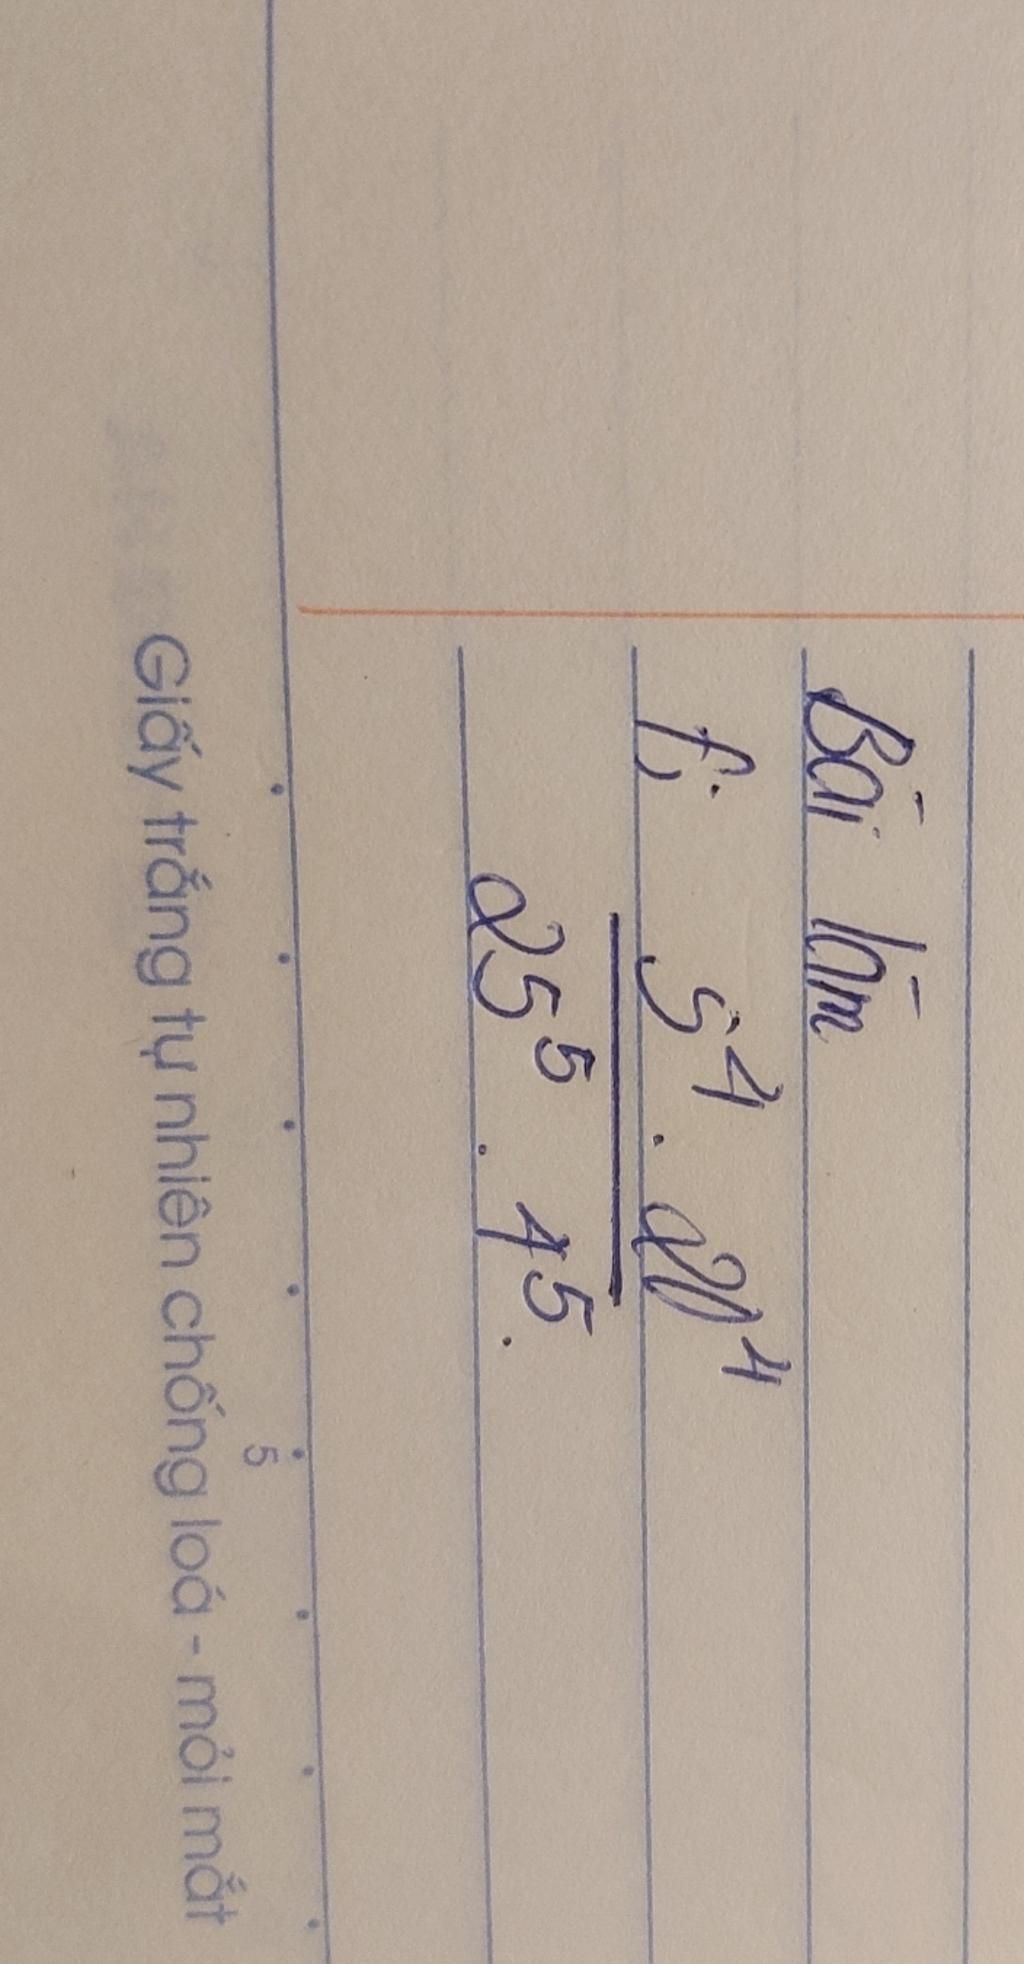 Bài làm
f, 5⁴ . 20⁴
25⁵ . 4⁵.
5
Giấy trắng tự nhiên chống loá - mỏi mắt